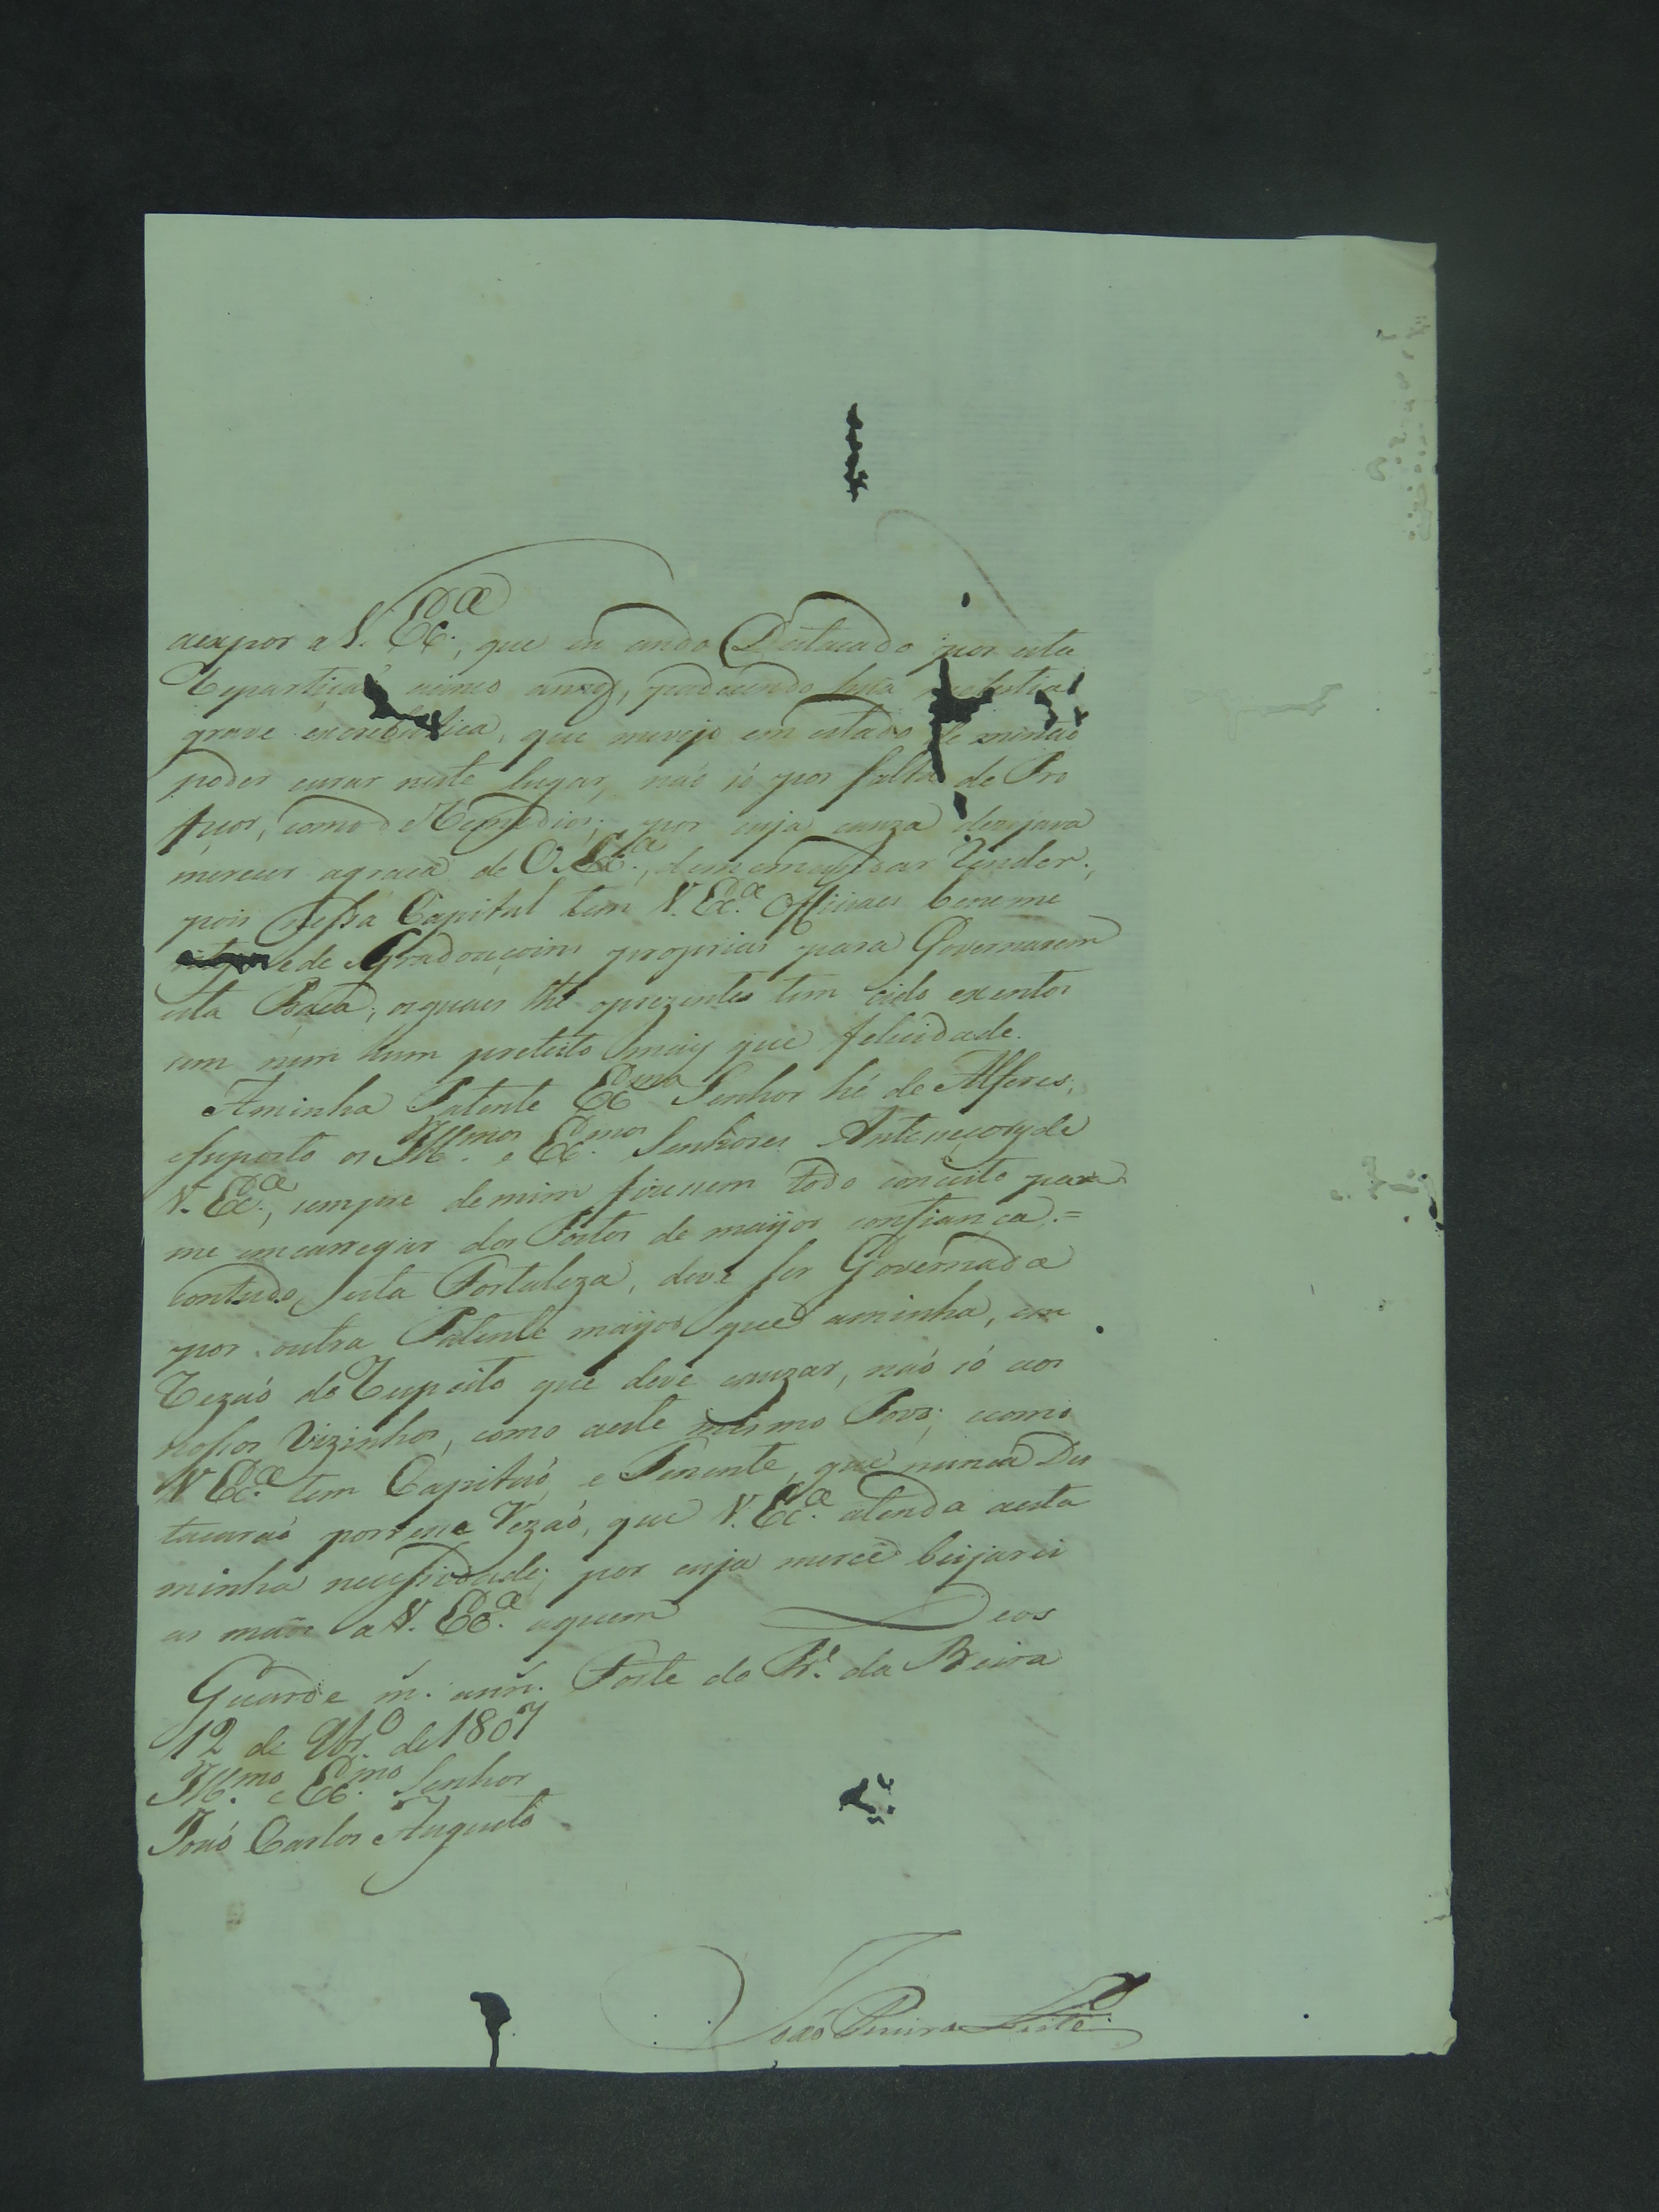 aexpor a V. Ex.ª, que eu ando Destacado por esta
Repartiçaó cinco annos, padecendo huã molestia
grave escorbutica, que mevejo em estado de menaó
poder curar neste lugar, naó só por falta de Pro
fecor, como de Remedios; por cuja cauza dezejava
merecer agraca de V. Ex.ª, dememandar Render,
pois nessa Capital tem V. Ex.ª Officiaes beneme
ede Graduaçoins proprias para Governarem
esta Praca, osquaes thé oprezente tem cido exentos
sem nem hum pretesto mais que felicidade.
Aminha Patente Ex.mo Senhor hé de Alferes,
esuposto os Ill.mos e Ex.mos Senhores Antececores de
V. Ex.ª, sempre demim fizecem todo conceito para
me emcarregar dos Postos de mayor confianca =
contudo esta Fortaleza, deve ser Governada
por outra Patente mayor que aminha, em
Rezaó do Respeito que deve cauzar, naó só aos
nossos Vizinhos, como aeste mesmo Povo; ecomo
V Ex.ª tem Capitaó, e Tenente, que nunca Des
tacaraó porreme Rezaó, que V. Ex.ª atenda aesta
minha necessidade; por cuja mercê beijarei
as maõs a V. Ex.ª aquem Deos
Guarde m. ann. Forte do Pr.e da Beira
12 de 9br.o de 1807
Ill.mo e Ex.mo Senhor
Joaó Carlos Augusto
João Pereira Leite